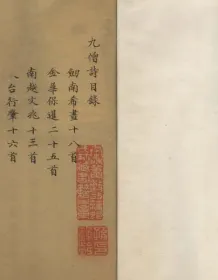 九僧詩目錄
劒南希晝十八首
金華保暹二十五首
南越文兆十三首
天台行肇十六首